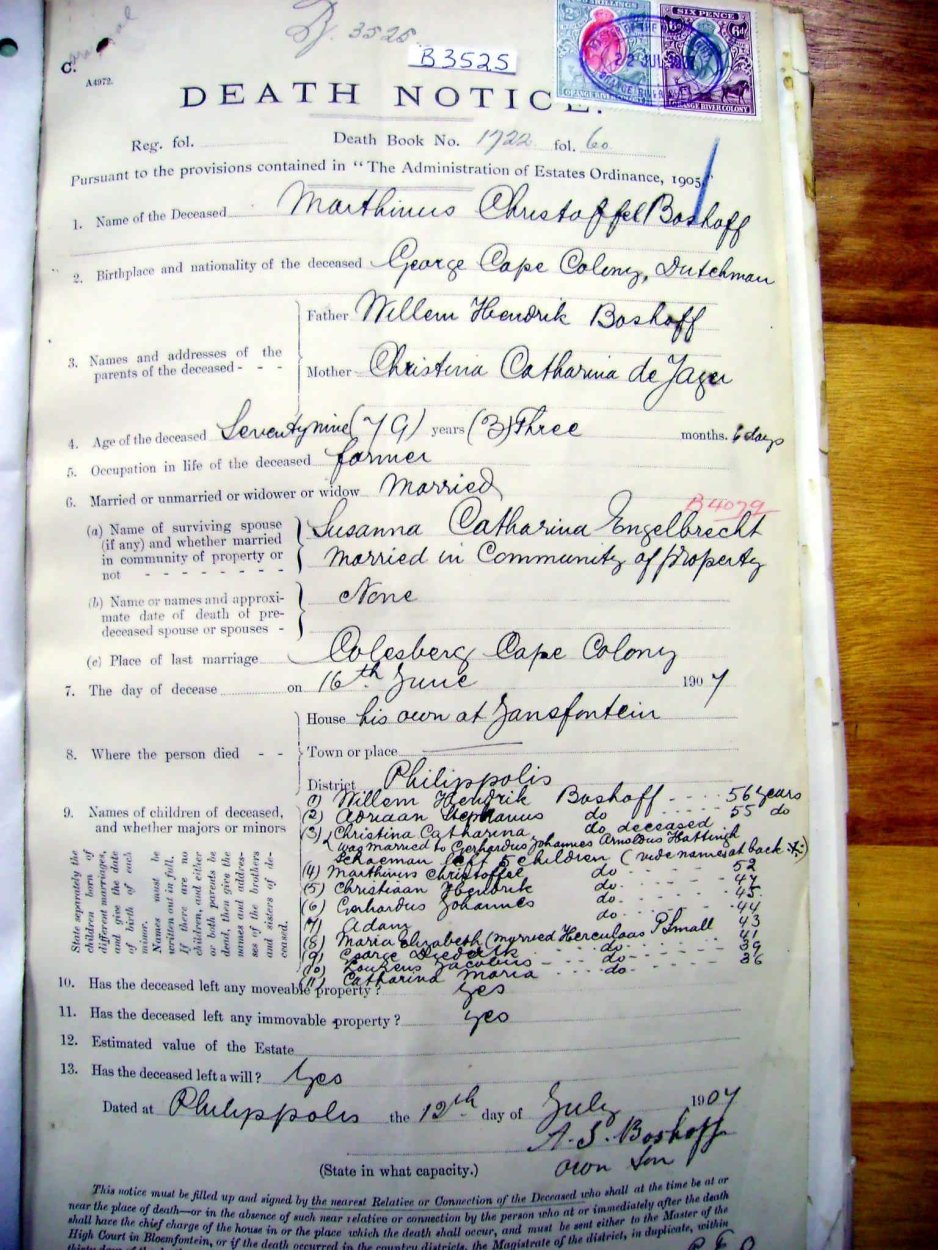 B. 3525
B3525
C.
A4972.
TWO SHILLINGS
SIX PENCE
6d
6d
22 JUL
ORANGE RIVER COLONY
ORANGE RIVER COLONY
DEATH NOTICE.
Reg. fol. Death Book No. 1722 fol. 60
Pursuant to the provisions contained in "The Administration of Estates Ordinance, 1905."
1. Name of the Deceased Marthinus Christoffel Boshoff
2. Birthplace and nationality of the deceased George Cape Colony, Dutchman
3. Names and addresses of the parents of the deceased - - -
Father Willem Hendrik Boshoff
Mother Christina Catharina de Jager
4. Age of the deceased Seventynine (79) years (3) Three months. 6 days
5. Occupation in life of the deceased farmer
6. Married or unmarried or widower or widow Married
B4079
(a) Name of surviving spouse (if any) and whether married in community of property or not - - - - - -
Susanna Catharina Engelbrecht
married in Community of property
(b) Name or names and approximate date of death of predeceased spouse or spouses -
None
(c) Place of last marriage Colesberg Cape Colony
7. The day of decease on 16th June 1907
8. Where the person died - -
House his own at Jansfontein
Town or place
District Philippolis
9. Names of children of deceased, and whether majors or minors
State separately the children born of different marriages, and give the date of birth of each minor.
Names must be written out in full.
If there are no children, and either or both parents be dead, then give the names and addresses of the brothers and sisters of deceased.
(1) Willem Hendrik Boshoff - - - - 56 years
(2) Adriaan Stephanus do - - - - 55 do
(3) Christina Catharina do deceased
was married to Gerhardus Johannes Arnoldus Hattingh
Schoeman left 5 children (vide names at back)
(4) Marthinus Christoffel do - - - 52
(5) Christiaan Hendrik do - - - 47
(6) Gerhardus Johannes do - - - 45
(7) Adam do - - - 44
(8) Maria Elizabeth (married Herculaas P Small 43
(9) George Diederik - do - - - 41
(10) Lourens Jacobus - - do - - - 39
(11) Catharina Maria - do - - - 36
10. Has the deceased left any moveable property? yes
11. Has the deceased left any immovable property? yes
12. Estimated value of the Estate
13. Has the deceased left a will? Yes
Dated at Philippolis the 12th day of July 1907
A. S. Boshoff
(State in what capacity.) own Son
This notice must be filled up and signed by the nearest Relative or Connection of the Deceased who shall at the time be at or
near the place of death—or in the absence of such near relative or connection by the person who at or immediately after the death
shall have the chief charge of the house in or the place which the death shall occur, and must be sent either to the Master of the
High Court in Bloemfontein, or if the death occurred in the country districts, the Magistrate of the district, in duplicate, within